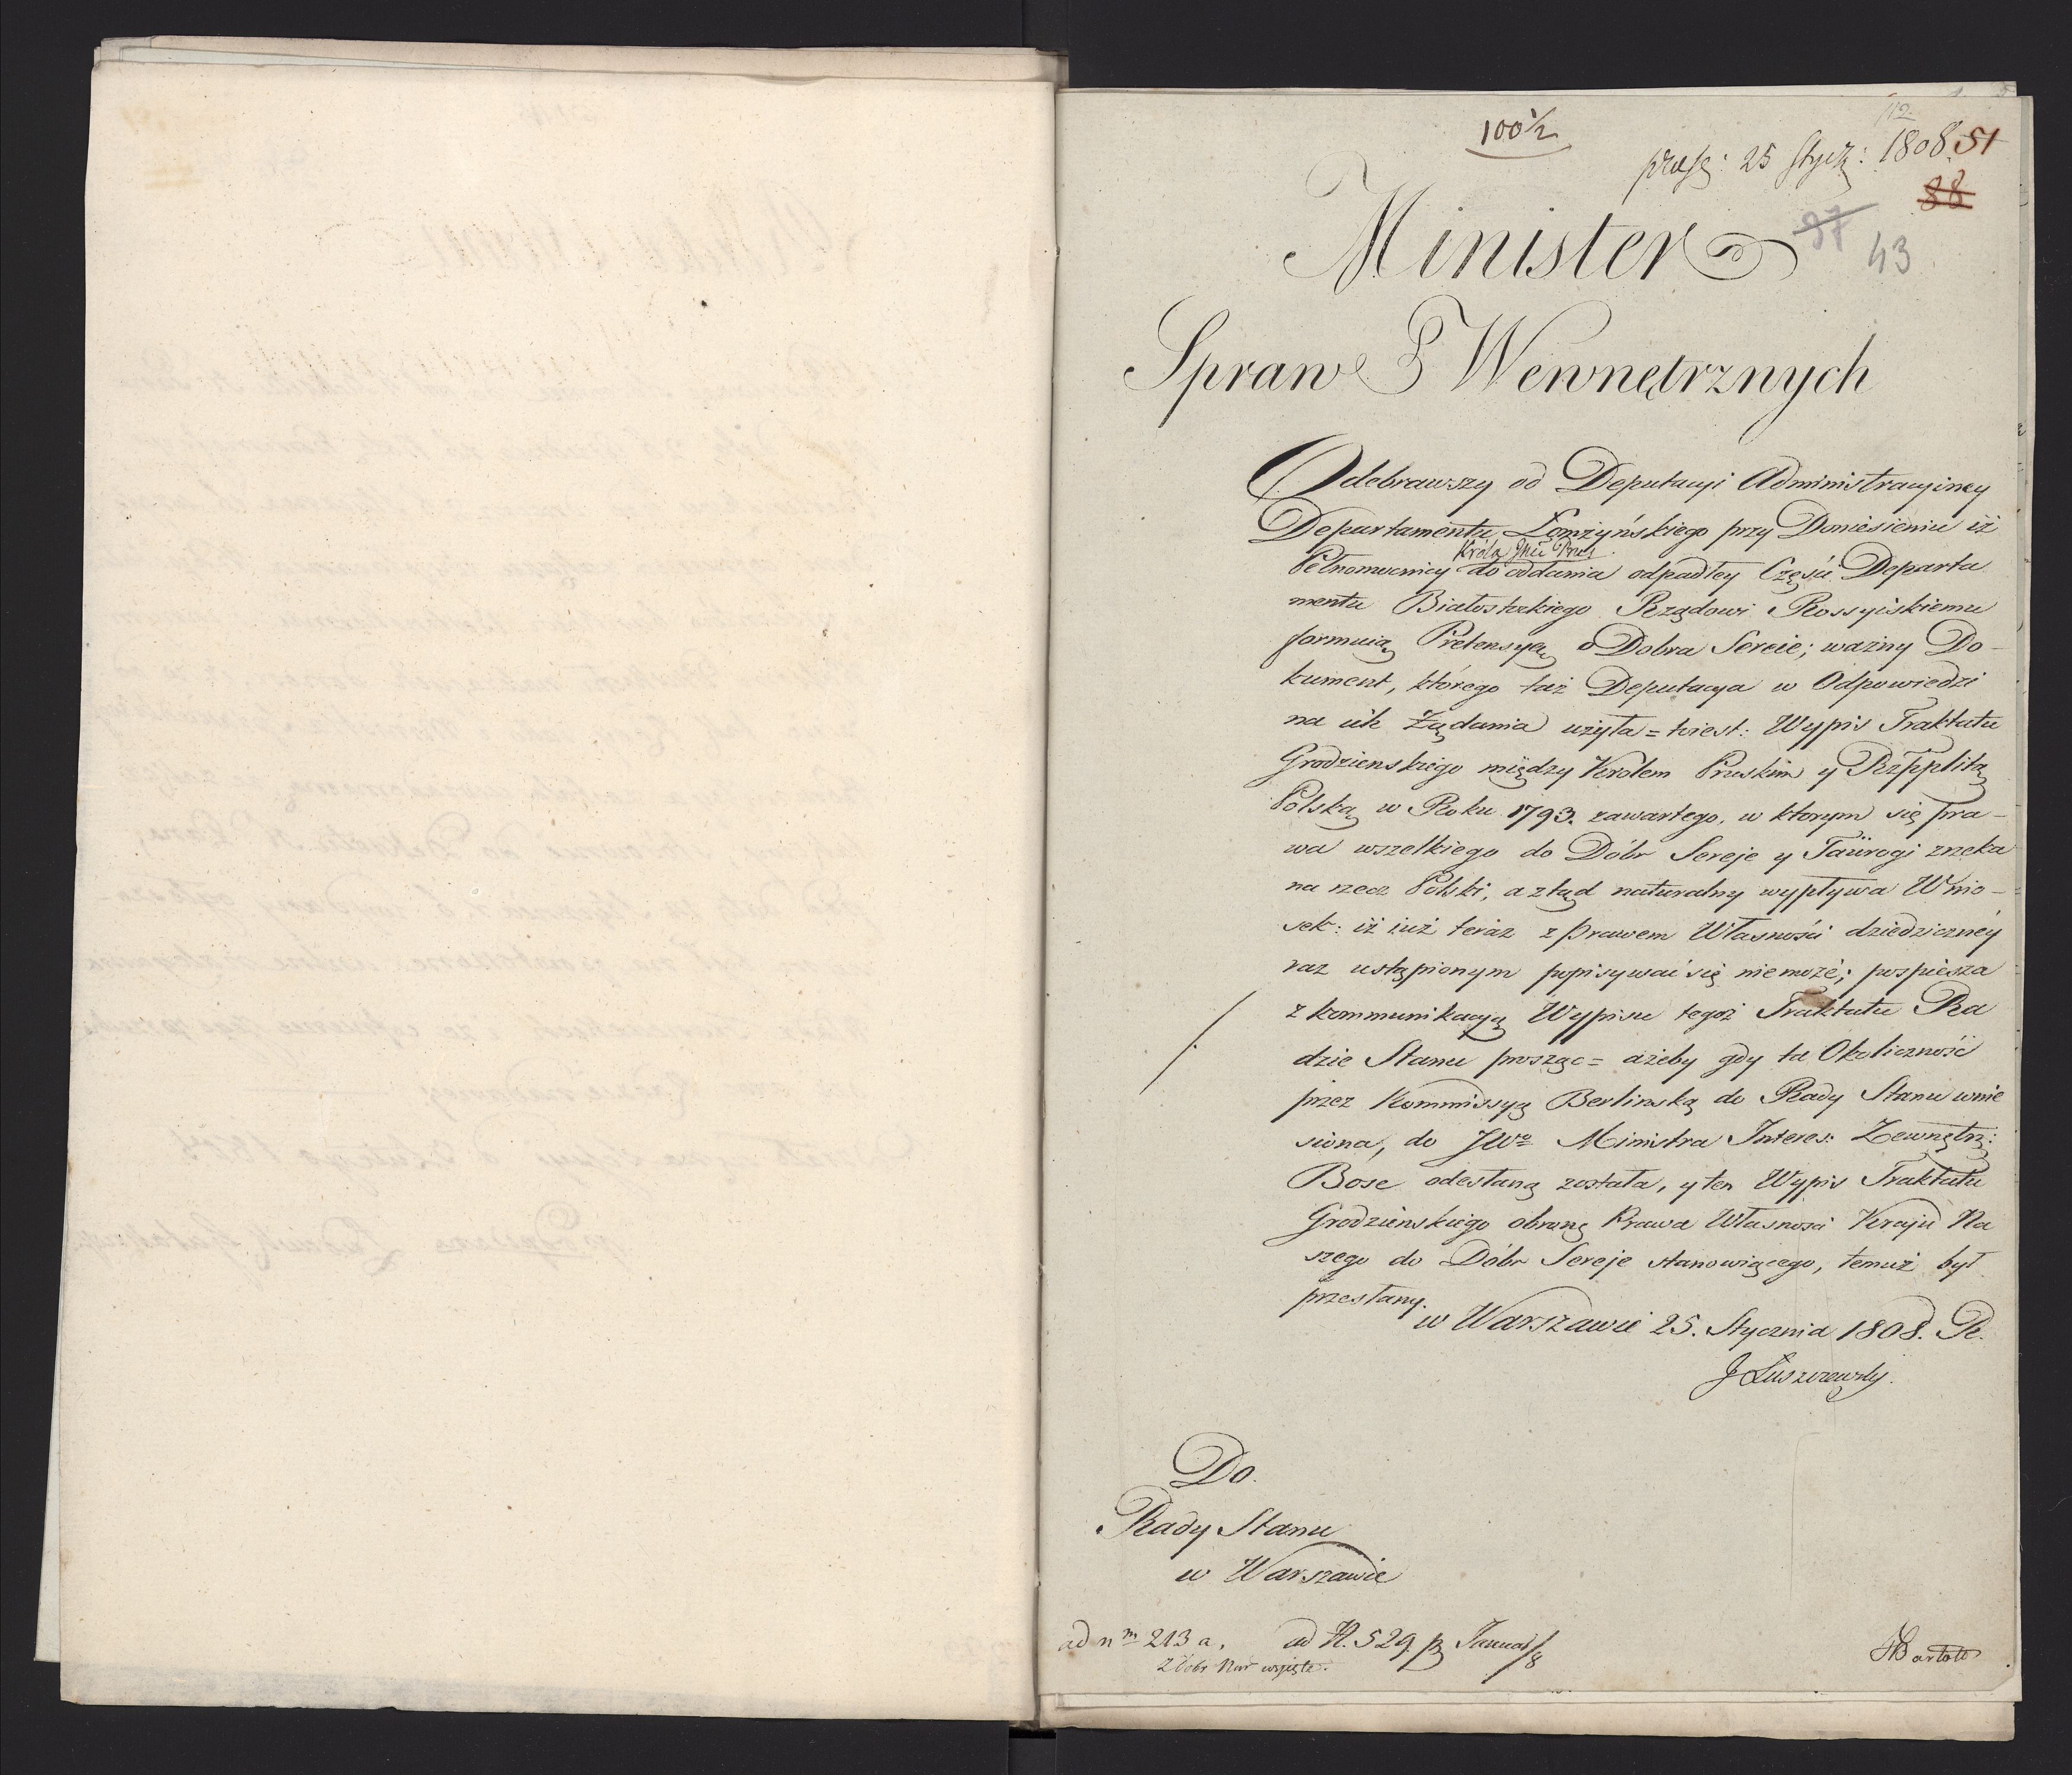 112
100 1/2
præs: 25 Stycz: 1808. 51
38
37 43
Minister
Spraw Wewnętrznych
Odebrawszy od Deputacyi Administracyiney
Departamentu Łomżyńskiego przy Doniesieniu iż
Króla Jmci Prus
Pełnomocnicy do oddania odpadłey Części Departa
mentu Białostockiego Rządowi Rossyiskiemu
formuią Pretensyą o Dobra Sereie; ważny Do-
kument, którego taż Deputacya w Odpowiedzi
na ich Żądania użyła = to iest: Wypis Traktatu
Grodzienskiego między Królem Pruskim y Rzpplitą
Polską w Roku 1793. zawartego, w ktorym się pra-
wa wszelkiego do Dóbr Sereje y Taürogi zrzeka
na rzecz Polski, a ztąd naturalny wypływa Wnio-
sek: iż iuż teraz z prawem Własności dziedziczney
raz ustąpionym popisywać się nie może; pospiesza
z kommunikacyą Wypisu tegoż Traktatu Ra
dzie Stanu prosząc = ażeby gdy ta Okoliczność
przez Kommissyą Berlinską do Rady Stanu wnie
siona, do JWo Ministra Interes: Zewnętrz:
Bose odesłaną została, y ten Wypis Traktatu
Grodzienskiego obronę Prawa Własności Kraju Na
szego do Dóbr Sereje stanowiącego, temuż był
przesłany.
w Warszawie 25. Stycznia 1808. R.
J Łuszczewsky.
Do
Rady Stanu
w Warszawie
ad nm 213 a. ad N. 529. p Januar/8
z Dobr Nar wzięte.